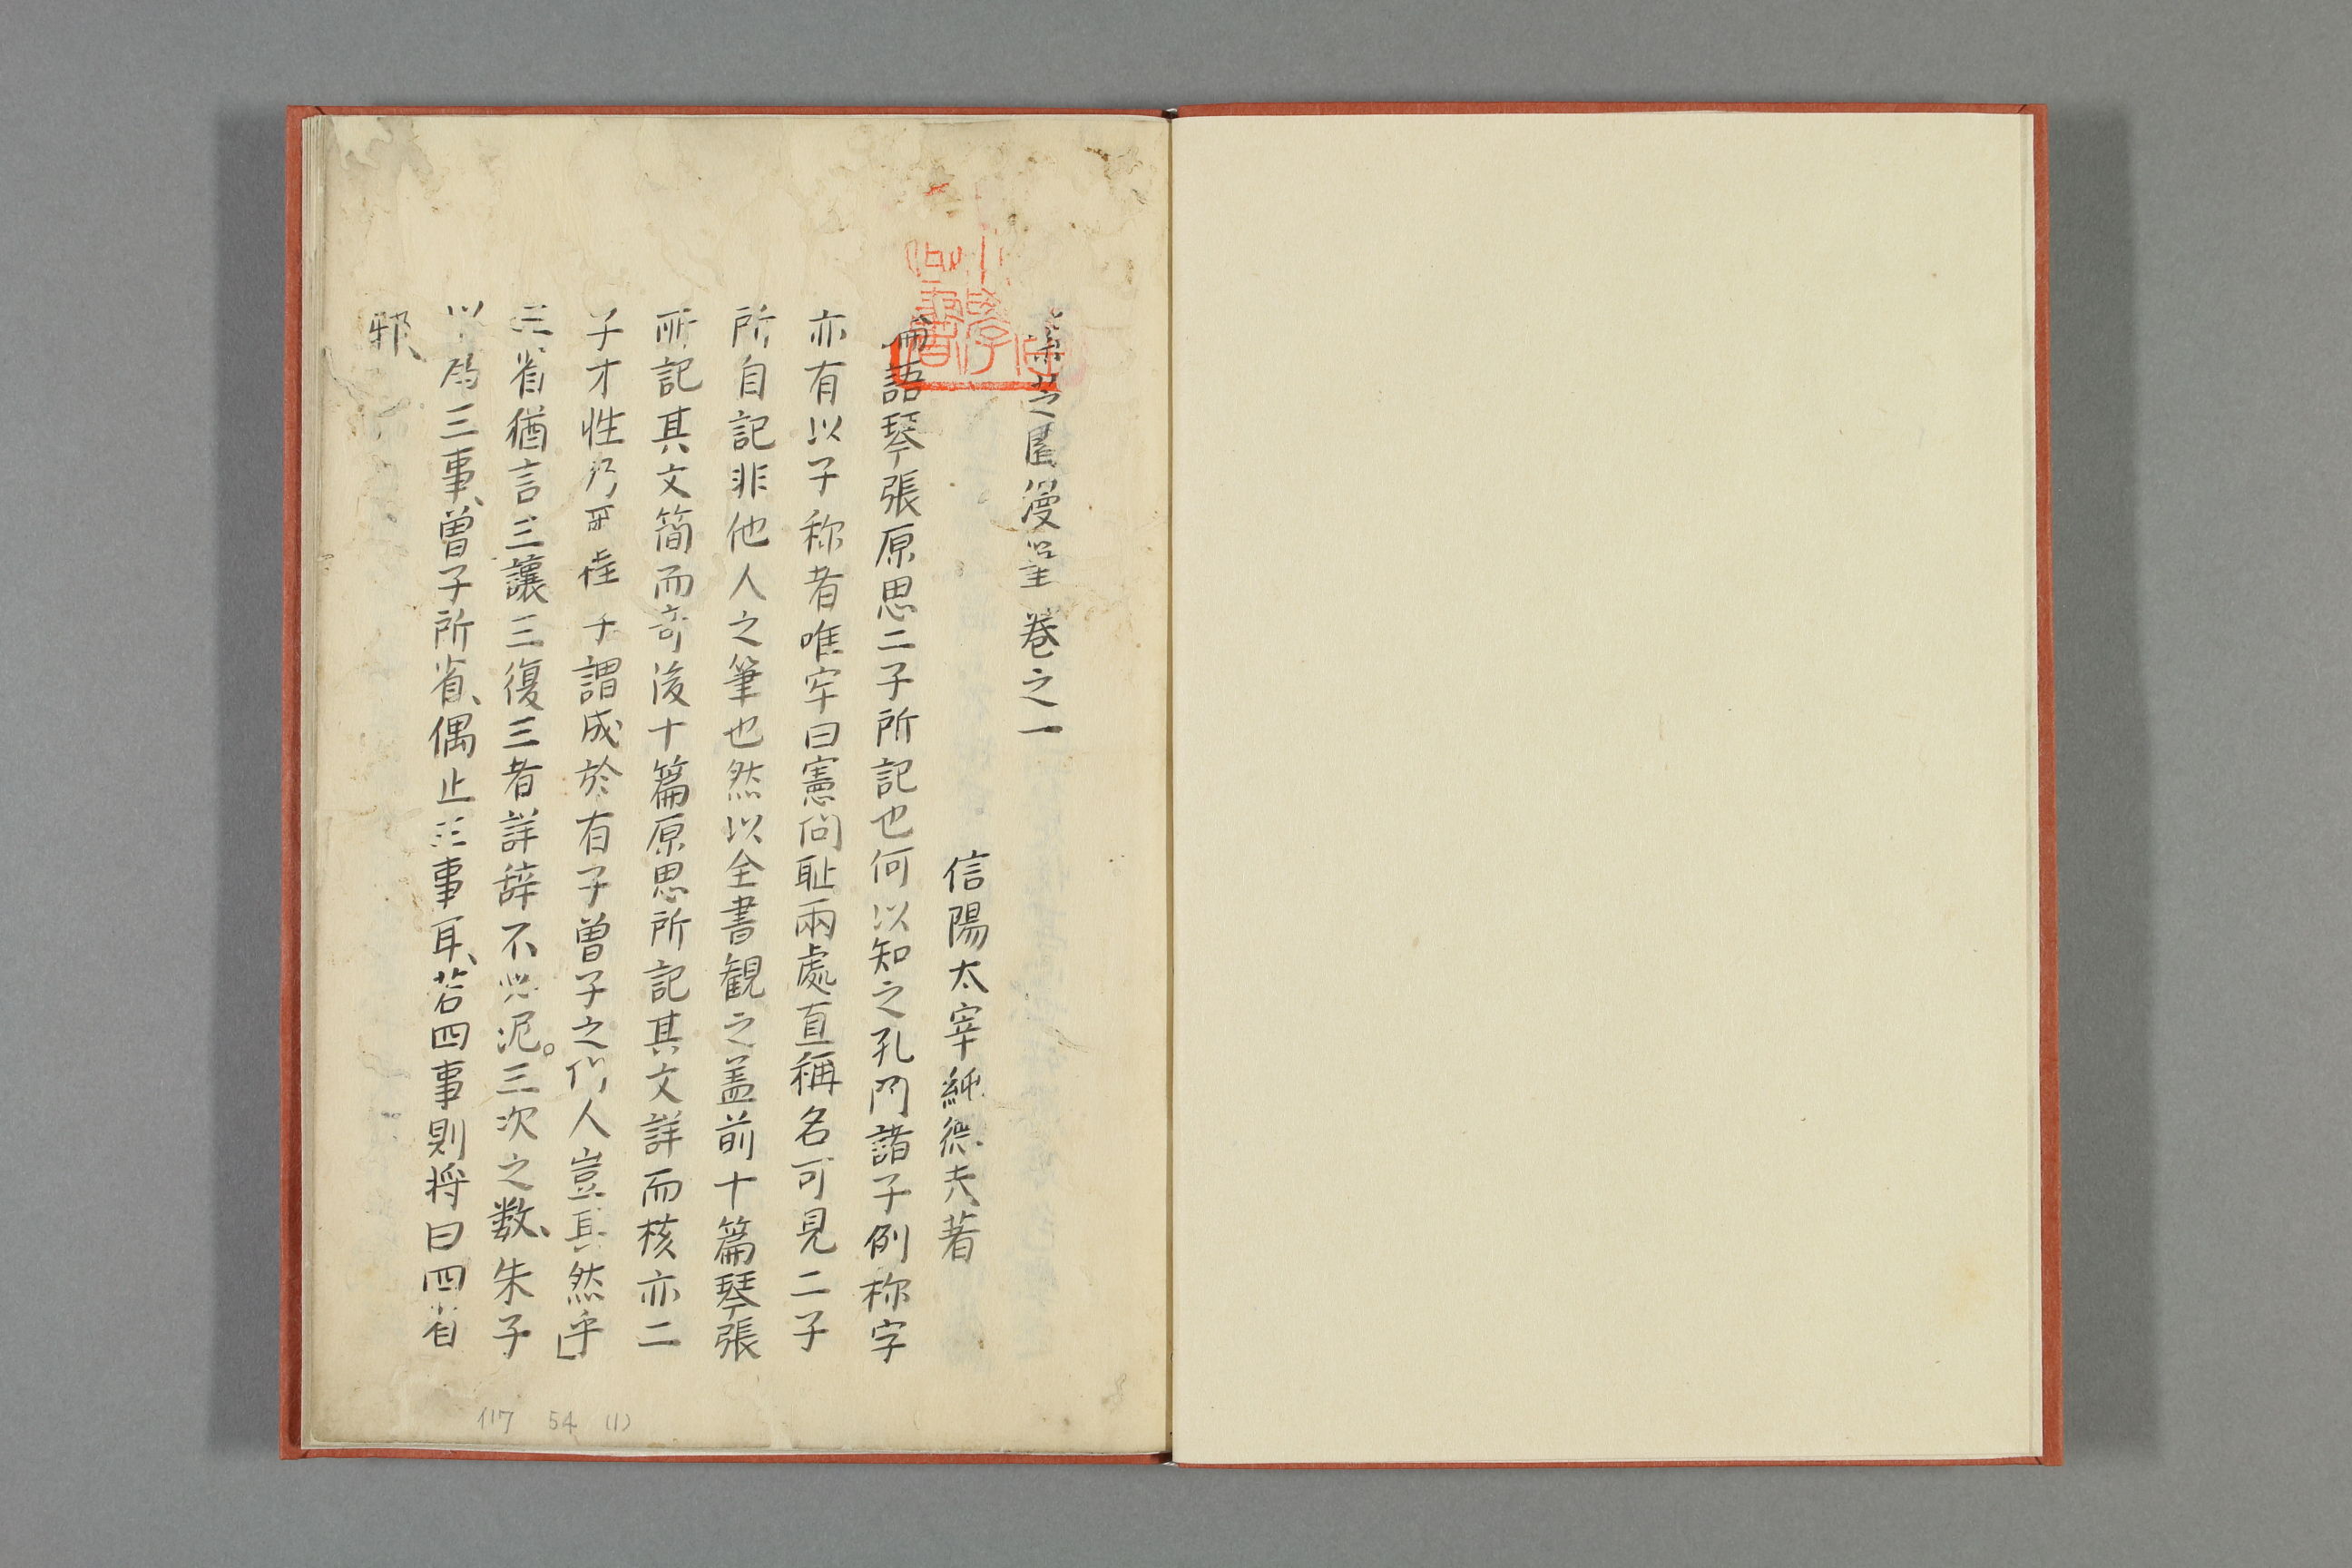 紫芝園漫筆 巻之一
信陽太宰純徳夫著
論語琴張原思二子所記也何以知之孔門諸子例称字
亦有以子称者唯牢曰憲問耻兩處直稱名可見二子
所自記非他人之筆也然以全書観之盖前十篇琴張
所記其文簡而奇後十篇原思所記其文詳而核亦二
子才性乃尓 謂成於有子曽子之門人豈其然乎」
三省猶言三譲三復三者詳辞不必泥。三次之数、朱子
以為三事、曽子所省、偶止三事耳、若四事則将曰四省
邪、
117 54 (1)